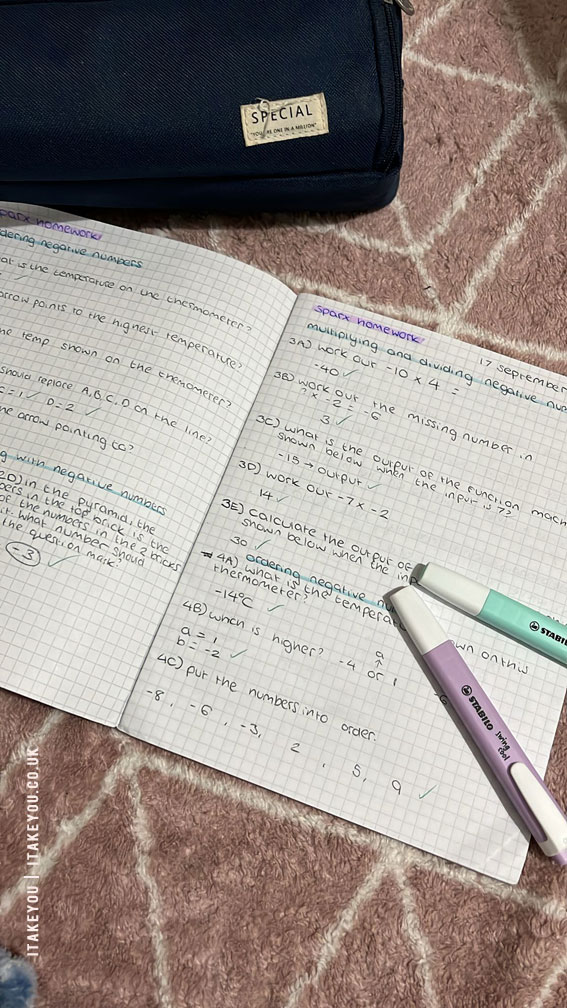 SPECIAL
"YOU'RE ONE IN A MILLION"
sparx homework
ordering negative numbers
what is the temperature on the thermometer?
arrow points to the highest temperature?
the temp shown on the themometer?
should replace A, B, C, D on the line?
C = 1 ✓ D = 2 ✓
the arrow pointing to?
g with negative numbers
2D) in the pyramid, the
bers in the top brick is the
of the numbers in the 2 bricks
it. what number should
the question mark?
-3 ✓
sparx homework
17 September
multiplying and dividing negative num
3A) work out -10 x 4 =
-40 ✓
3B) work out the missing number in
? x -2 = -6
3 ✓
3C) what is the output of the function mach
shown below when the input is 7?
-15 → output ✓
3D) work out -7 x -2
14 ✓
3E) calculate the output of
shown below when the inp
30 ✓
4A) ordering negative nu
what is the temperat wn on this
thermometer?
-14°C ✓
4B) which is higher? -4 or 1
a
↑
a = 1
b = -2 ✓
4C) put the numbers into order.
-6
-8, -6, -3, 2, 5, 9 ✓
STABILO
STABILO swing cool
ITAKEYOU | ITAKEYOU.CO.UK